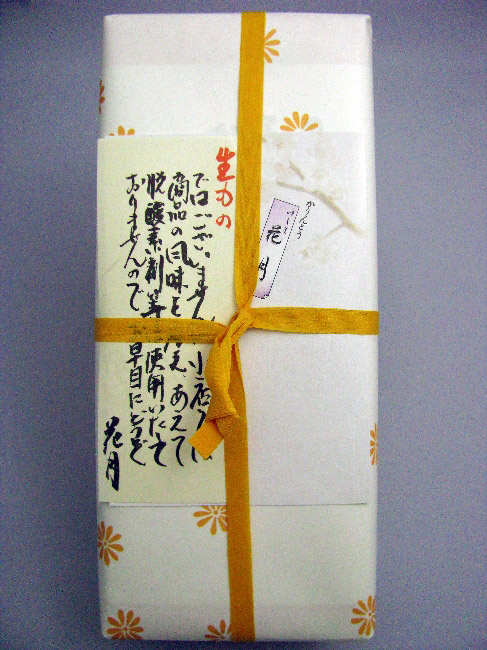 生もの
ではございません 小店では
商品の風味を考え、あえて
脱酸素剤等 使用いたして
おりませんので お早目にどうぞ
花月
かりんとう
花月